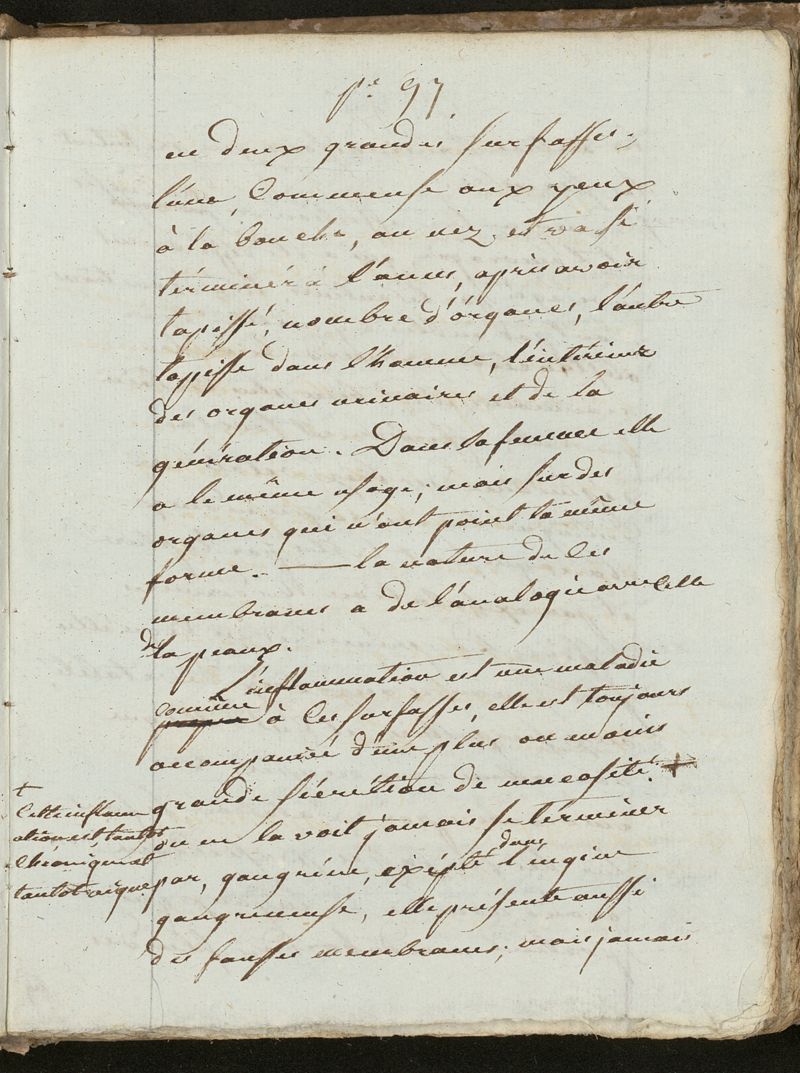 pe 97
en deux grandes surfasses;
l'une, Commense aux yeux
à la bouche, au nez, et va se
términér à l'anus, après avoir
tapissé, nombre d'órganes, l'autre
tapisse dans l'homme, l'intérieur
des organes urinaires et de la
génération. Dans la femme elle
a le même usage; mais sur des
organes qui n'ont point la même
forme. — la nature de Ces
membranes a de l'analogie avec Celle
de la peaux.
L'inflammation est une maladie
comùne à Ces surfasses, elle est toujours
accompannié d'une plus ou moins
grande sécrétion de mucosité. +
on ne la voit jamais se terminer
par, gangréne, exépté dans l'engine
gangreneuse, elle présente aussi
des fausses membranes; mais jamais
+
Cette inflamm
ation est, tantot
Chronique et
tantot aigue